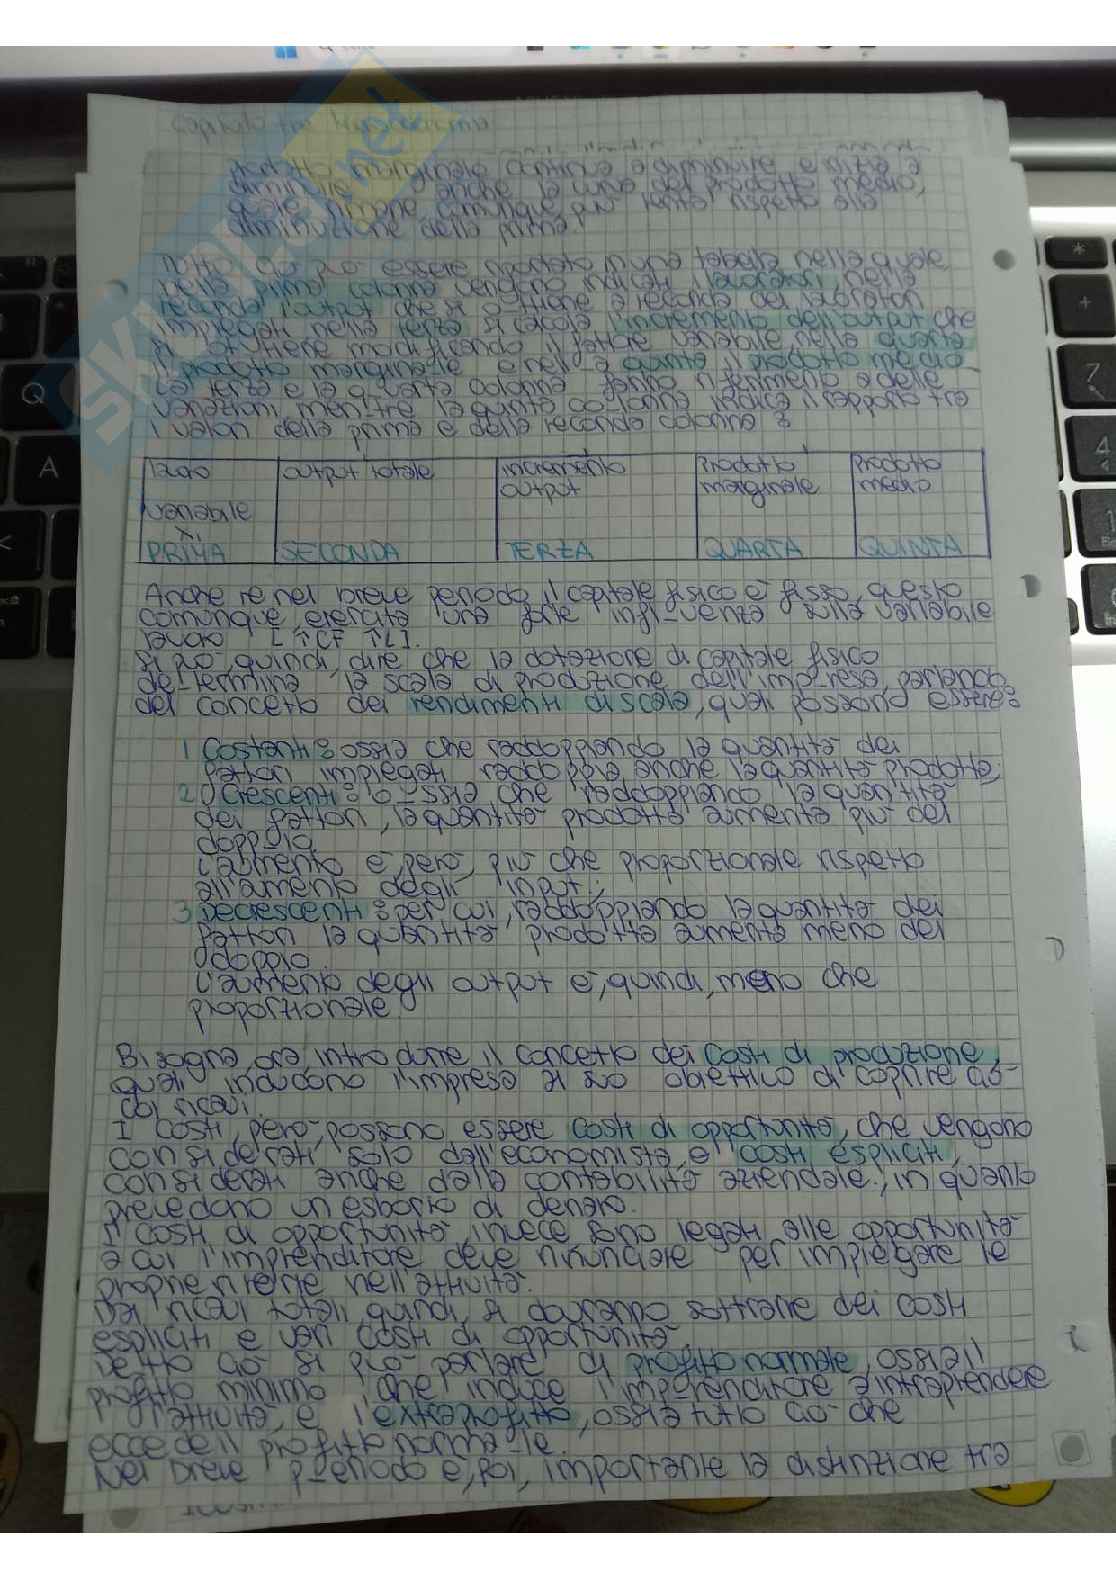 prodotto marginale continua a diminuire e inizia a
diminuire anche la curva del prodotto medio,
quale rimane comunque più lenta rispetto alla
diminuzione della prima.
Tutto ciò può essere riportato in una tabella nella quale
nella prima colonna vengono indicati i lavoratori nella
seconda l'output che si ottiene a seconda dei lavoratori
impiegati nella terza si calcola l'incremento dell'output che
si ottiene modificando il fattore variabile nella quarta
il prodotto marginale e nella quinta il prodotto medio.
La terza e la quarta colonna fanno riferimento a delle
variazioni, mentre la quinta colonna indica il rapporto tra
i valori della prima e della seconda colonna:
lavoro output totale incremento prodotto prodotto
output marginale medio
variabile
X₁
PRIMA SECONDA TERZA QUARTA QUINTA
Anche se nel breve periodo il capitale fisico è fisso, questo
comunque, esercita una forte influenza sulla variabile
lavoro [↑CF ↑L].
Si può, quindi, dire che la dotazione di capitale fisico
determina la scala di produzione dell'impresa, parlando
del concetto dei rendimenti di scala, quali possono essere:
1 Costanti: ossia che raddoppiando la quantità dei
fattori impiegati raddoppia anche la quantità prodotta;
2 Crescenti: ossia che raddoppiando la quantità
dei fattori, la quantità prodotta aumenta più del
doppio.
L'aumento è, però, più che proporzionale rispetto
all'aumento degli input;
3 Decrescenti: per cui, raddoppiando la quantità dei
fattori la quantità prodotta aumenta meno del
doppio.
L'aumento degli output è, quindi, meno che
proporzionale
Bisogna, ora introdurre il concetto dei costi di produzione,
quali inducono l'impresa al suo obiettivo di coprire ciò
coi ricavi.
I costi, però, possono essere costi di opportunità, che vengono
considerati solo dall'economista, e costi espliciti,
considerati anche dalla contabilità aziendale, in quanto
prevedono un esborso di denaro.
I costi di opportunità, invece sono legati alle opportunità
a cui l'imprenditore deve rinunciare per impiegare le
proprie risorse nell'attività.
Dai ricavi totali, quindi, si dovranno sottrarre dei costi
espliciti e vari costi di opportunità.
Detto ciò si può parlare di profitto normale, ossia il
profitto minimo che induce l'imperenditore a intraprendere
l'attività, e l'extraprofitto, ossia tutto ciò che
eccede il profitto normale.
Nel breve periodo è, poi, importante la distinzione tra
SKUOLA.net